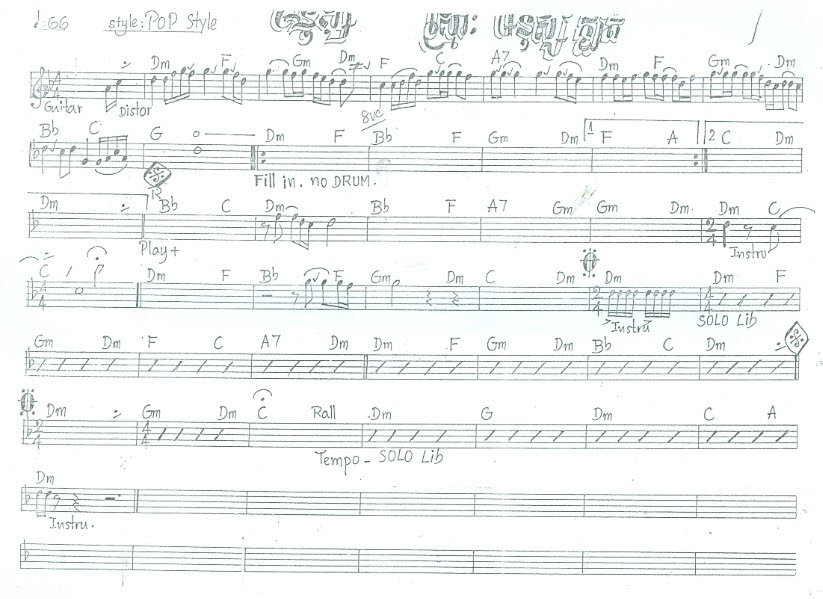 ♩:66 style: POP Style
Dm F Gm Dm F C A7 Dm F Gm Dm
Guitar Distor
8ve
Bb C G Dm F Bb F Gm Dm 1 F A 2 C Dm
Fill in. no DRUM.
Dm Bb C Dm Bb F A7 Gm Gm Dm Dm C
Play+ Instru
C Dm F Bb F Gm Dm C Dm Dm Dm F
Instru SOLO Lib
Gm Dm F C A7 Dm Dm F Gm Dm Bb C Dm
Dm Gm Dm C Rall Dm G Dm C A
Tempo - SOLO Lib
Dm
Instru.